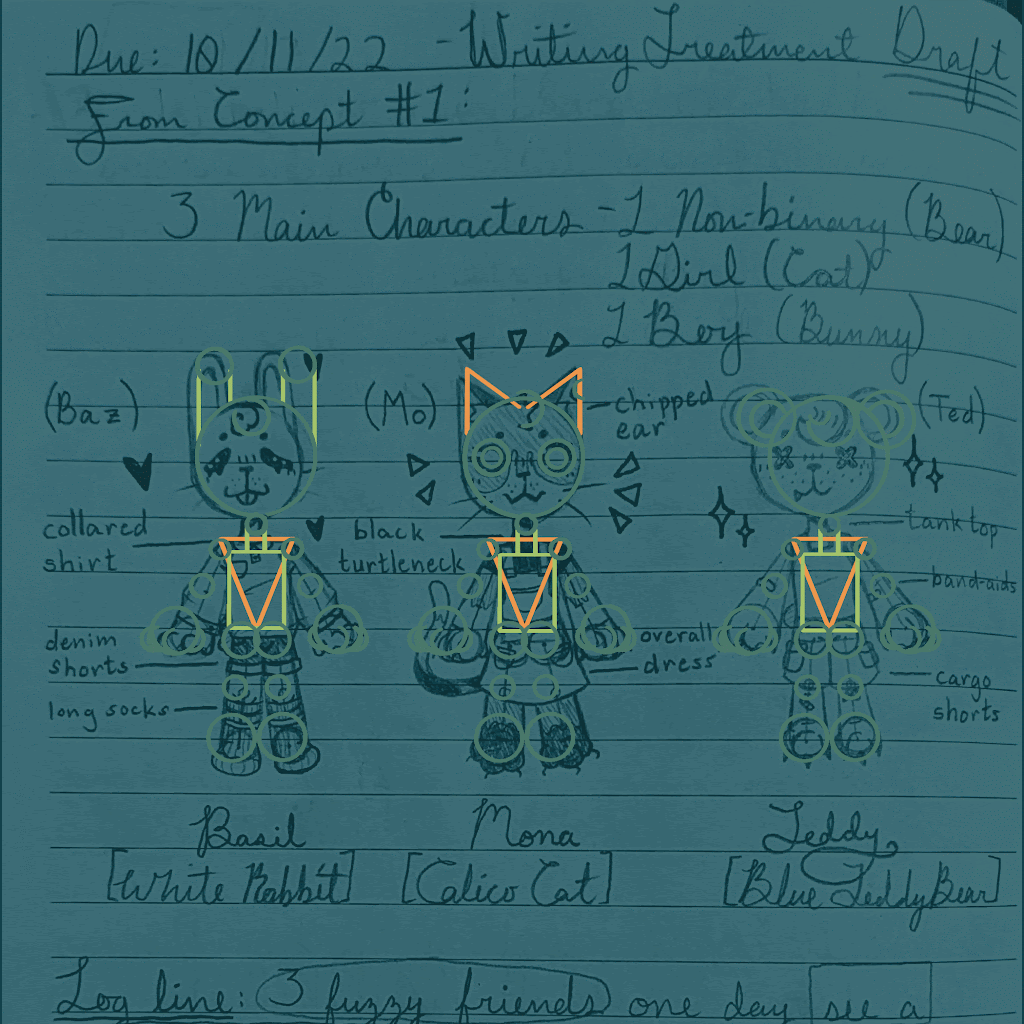 Due: 10/11/22 - Writing Treatment Draft
From Concept #1:
3 Main Characters - 1 Non-binary (Bear)
1 Girl (Cat)
1 Boy (Bunny)
(Baz)
(Mo)
chipped ear
(Ted)
collared shirt
black turtleneck
tank top
band-aids
denim shorts
overall dress
long socks
cargo shorts
Basil
Mona
Teddy
[White Rabbit]
[Calico Cat]
[Blue Teddy Bear]
Log line: 3 fuzzy friends one day see a